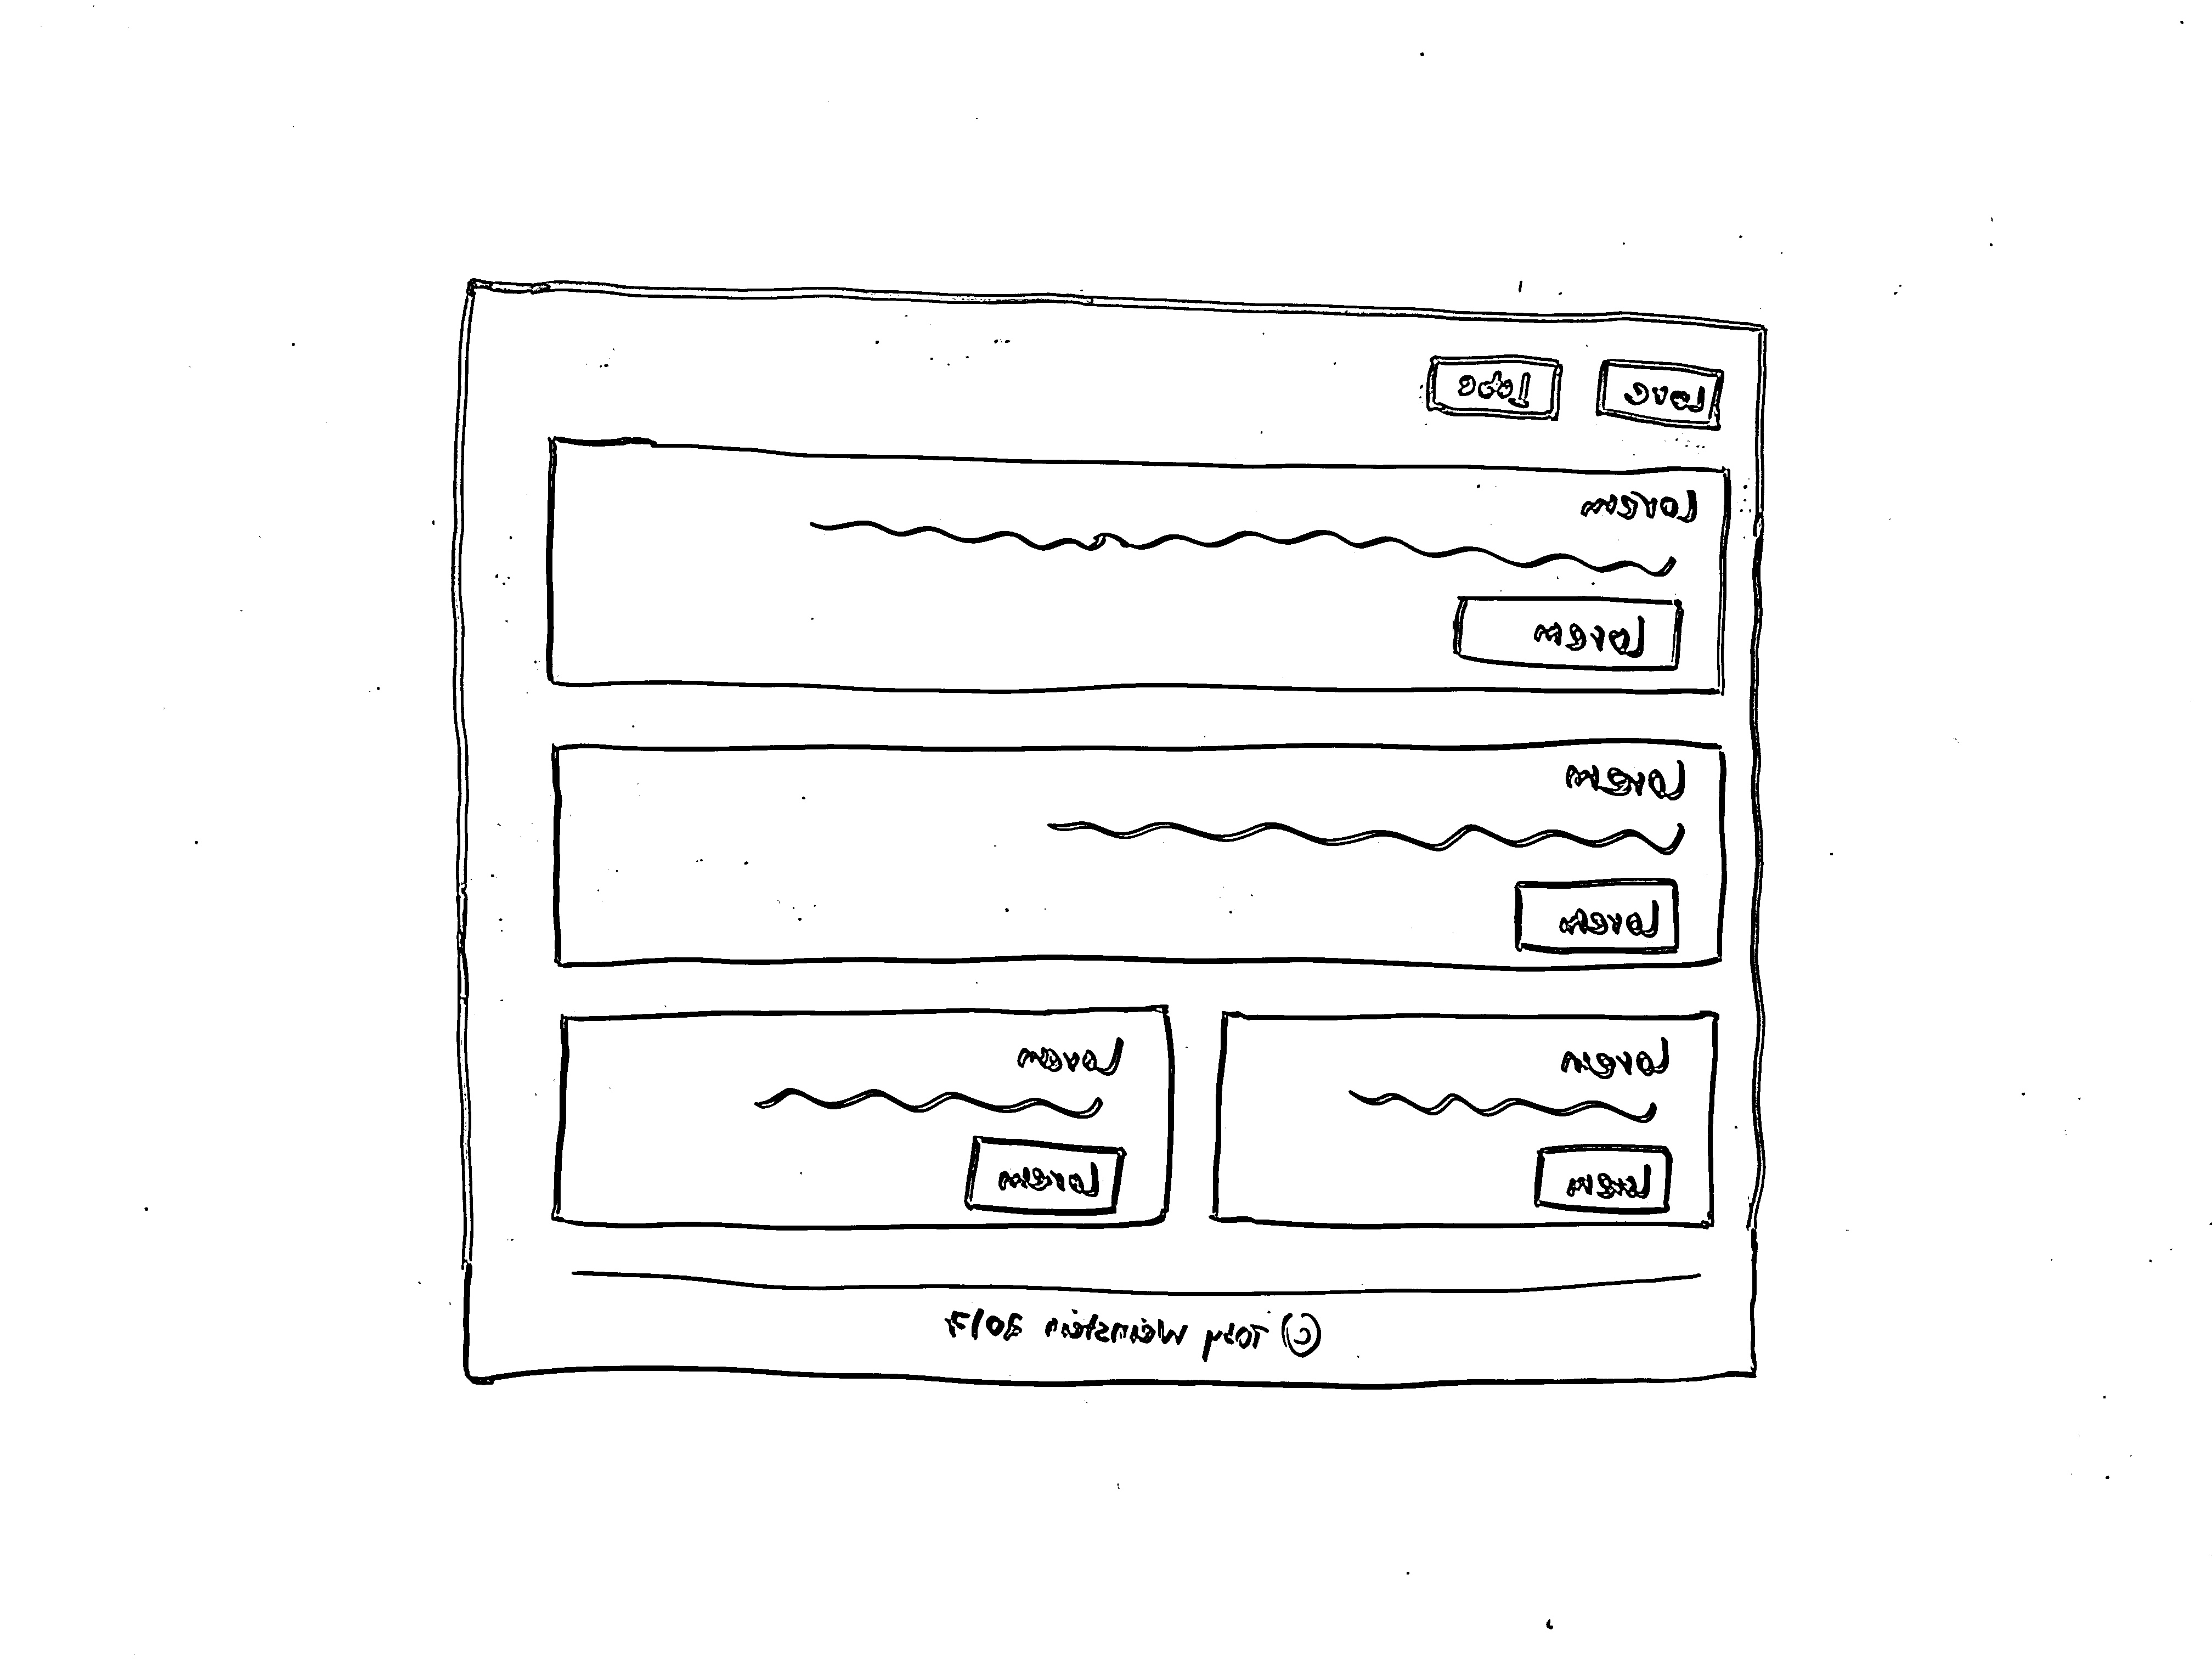 Lore
Lorem
Lorem
Lorem
Lorem
Lorem
Lorem
Lorem
Lorem
© Toby Weinstein 2017